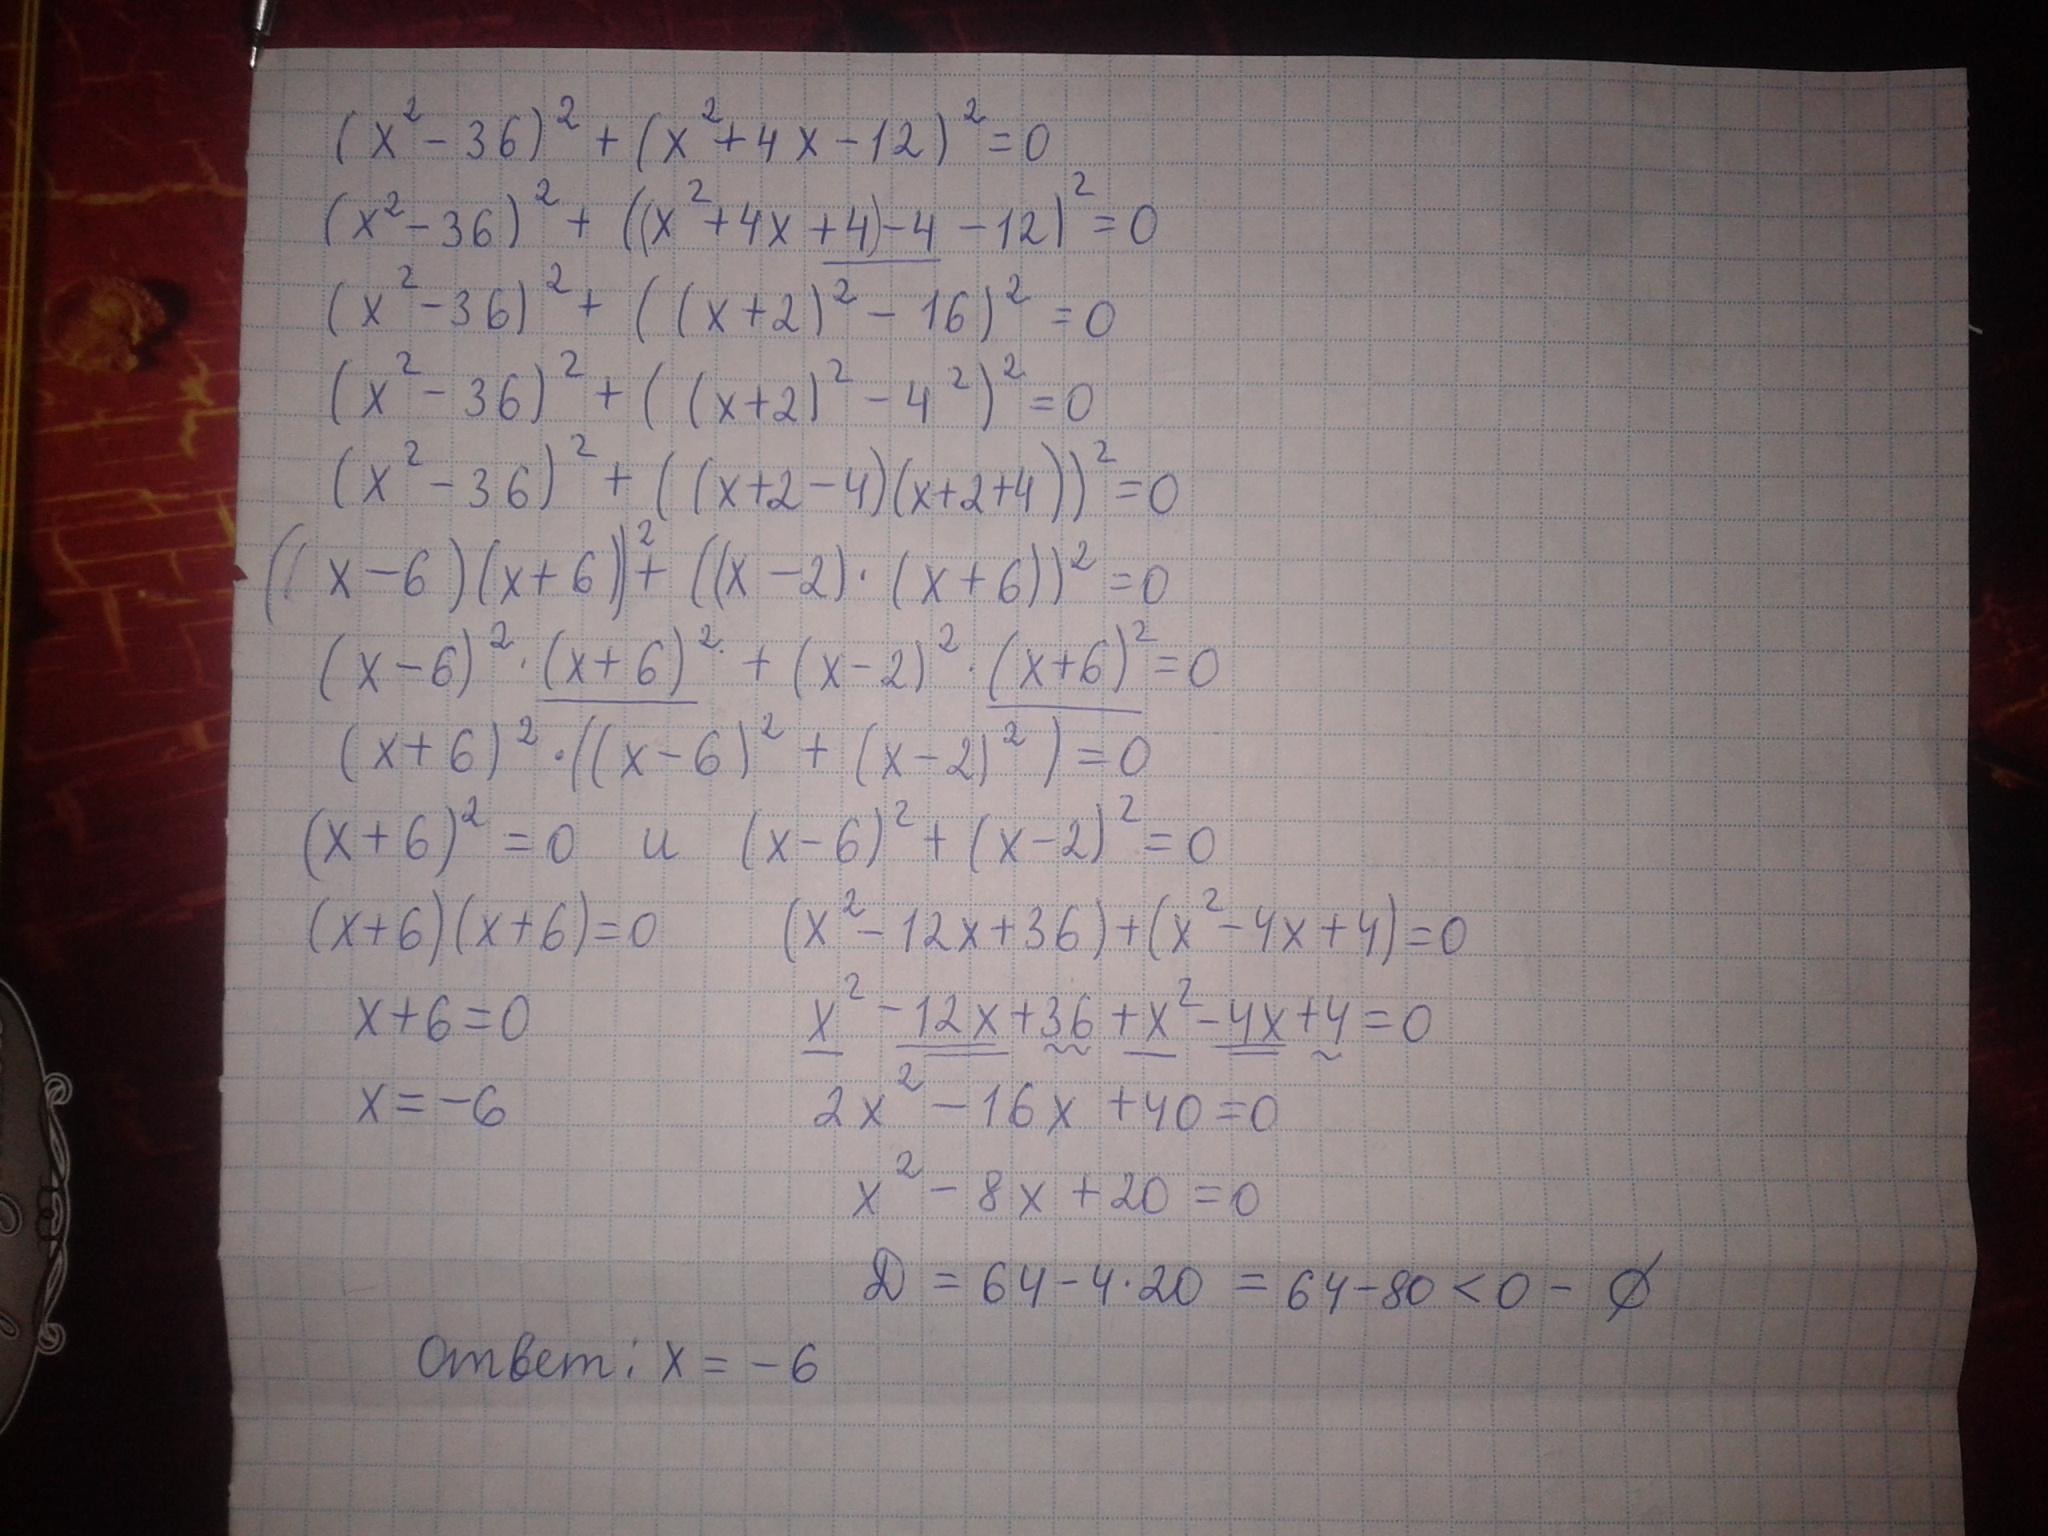 (x²-36)² + (x²+4x-12)² = 0
(x²-36)² + ((x²+4x+4)-4-12)² = 0
(x²-36)² + ((x+2)²-16)² = 0
(x²-36)² + ((x+2)²-4²)² = 0
(x²-36)² + ((x+2-4)(x+2+4))² = 0
((x-6)(x+6))² + ((x-2)·(x+6))² = 0
(x-6)²·(x+6)² + (x-2)²·(x+6)² = 0
(x+6)²·((x-6)² + (x-2)²) = 0
(x+6)² = 0 и (x-6)² + (x-2)² = 0
(x+6)(x+6)=0 (x²-12x+36)+(x²-4x+4)=0
x+6=0 x²-12x+36+x²-4x+4=0
x=-6 2x²-16x+40=0
x²-8x+20=0
D = 64-4·20 = 64-80 < 0 - ∅
Ответ: x = -6